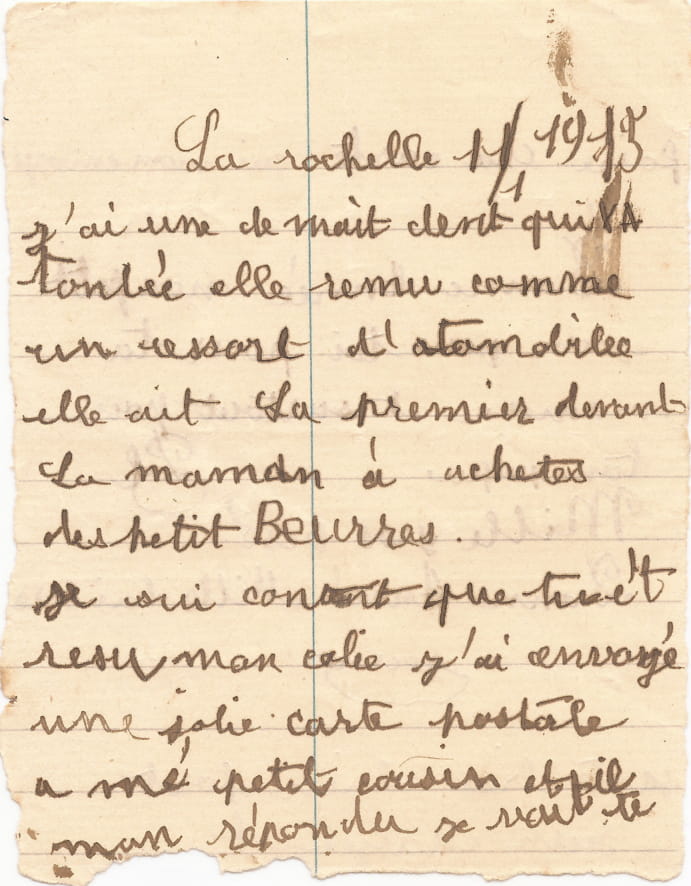 La rochelle 11/1 1915
j'ai une de mait dent qui VA
tonbée elle remu comme
un ressort d'atomobilee
elle ait La premier devant
La maman à achetes
des petit Beurres.
je sui contant que tu ét
resu mon colie j'ai envoyé
une jolie carte postale
a mé petit cousin et il
mon répondu je vait te